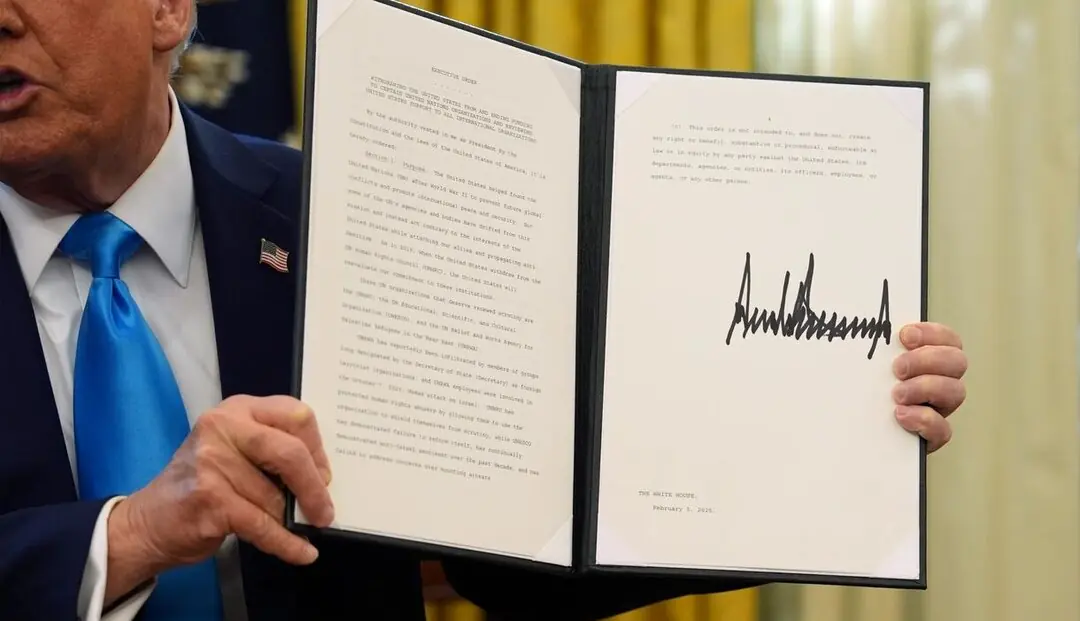 EXECUTIVE ORDER
WITHDRAWING THE UNITED STATES FROM AND ENDING FUNDING
TO CERTAIN UNITED NATIONS ORGANIZATIONS AND REVIEWING
UNITED STATES SUPPORT TO ALL INTERNATIONAL ORGANIZATIONS
By the authority vested in me as President by the
Constitution and the laws of the United States of America, it is
hereby ordered:
Section 1. Purpose. The United States helped found the
United Nations (UN) after World War II to prevent future global
conflicts and promote international peace and security. But
some of the UN's agencies and bodies have drifted from this
mission and instead act contrary to the interests of the
United States while attacking our allies and propagating anti
Semitism. As in 2018, when the United States withdrew from the
UN Human Rights Council (UNHRC), the United States will
reevaluate our commitment to these institutions.
Three UN organizations that deserve renewed scrutiny are
the UNHRC; the UN Educational, Scientific, and Cultural
Organization (UNESCO); and the UN Relief and Works Agency for
Palestine Refugees in the Near East (UNRWA).
UNRWA has reportedly been infiltrated by members of groups
long designated by the Secretary of State (Secretary) as foreign
terrorist organizations, and UNRWA employees were involved in
the October 7, 2023, Hamas attack on Israel. UNHRC has
protected human rights abusers by allowing them to use the
organization to shield themselves from scrutiny, while UNESCO
has demonstrated failure to reform itself, has continually
demonstrated anti-Israel sentiment over the past decade, and has
failed to address concerns over mounting arrears
This order is not intended to, and does not, create
any right or benefit, substantive or procedural, enforceable at
law or in equity by any party against the United States, its
departments, agencies, or entities, its officers, employees, or
agents, or any other person.
THE WHITE HOUSE,
February 2025.